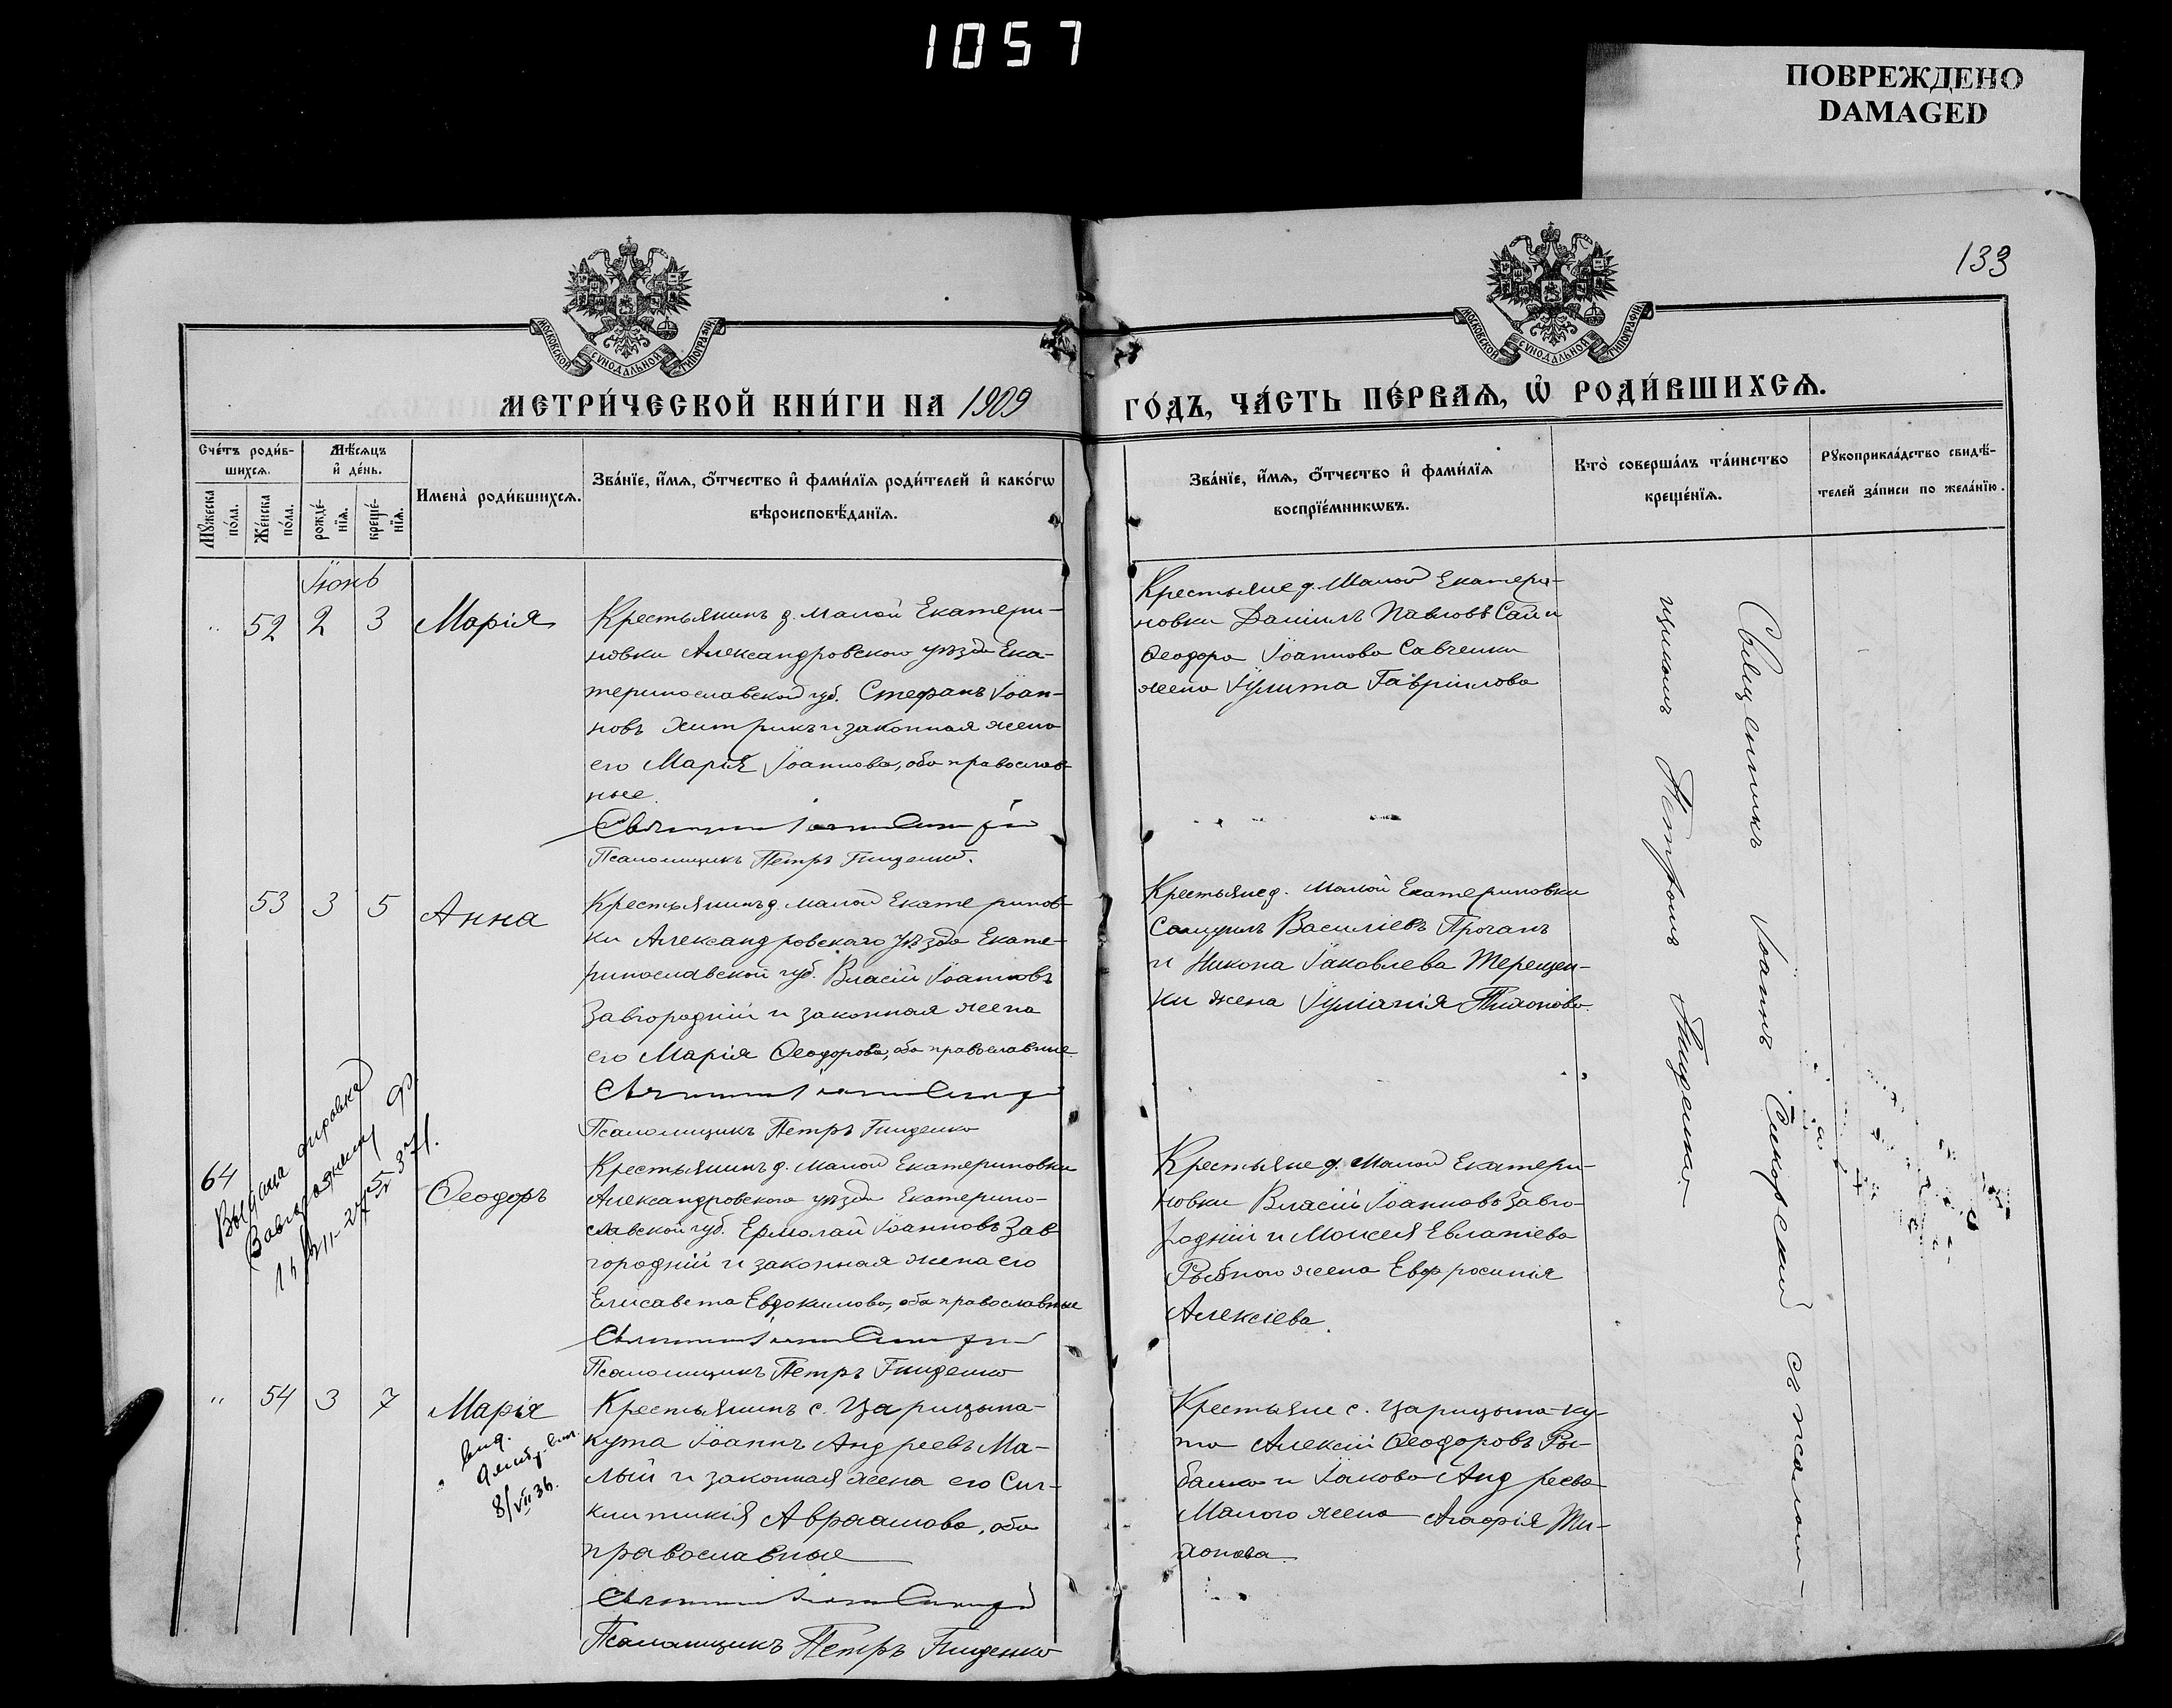 1057
ПОВРЕЖДЕНО
DAMAGED
133
МОСКОВСКОЙ СУНОДАЛЬНОЙ ТИПОГРАФІИ
МОСКОВСКОЙ СУНОДАЛЬНОЙ ТИПОГРАФІИ
МЕТРИ́ЧЕСКОЙ КНИ́ГИ НА 1909
ГО́ДЪ, ЧА́СТЬ ПЕ́РВАѦ, Ѡ҆ РОДИ́ВШИХСѦ.
Сче́тъ роди́в-
шихсѧ.
Мꙋ́жеска по́ла.
Же́нска по́ла.
Мѣ́сѧцъ
и҆ де́нь.
рожде́-
нїѧ.
креще́-
нїѧ.
Имена̀ роди́вшихсѧ.
Зва́нїе, и҆́мѧ, ѻ҆́тчество и҆ фами́лїѧ роди́телей и҆ како́гѡ
вѣроисповѣ́данїѧ.
Зва́нїе, и҆́мѧ, ѻ҆́тчество и҆ фами́лїѧ
воспрїе́мникѡвъ.
Кто̀ соверша́лъ та́инство
креще́нїѧ.
Рꙋкоприкла́дство свидѣ́-
телей за́писи по жела́нїю.
Іюнь
" 52 2 3 Марія
Крестьянинъ д. Малой Екатери-
новки Александровскаго уѣзда Ека-
теринославской губ. Стефанъ Іоан-
новъ Хитрикъ и законная жена
его Марія Іоаннова, оба православ-
ные.
Псаломщикъ Петръ Гниденко.
Крестьяне д. Малой Екатери-
новки Даніилъ Павловъ и
Ѳеодора Іоаннова Савченки
жена Іулита Гавріилова
53 3 5 Анна
Крестьянинъ д. Малой Екатеринов-
ки Александровскаго уѣзда Екате-
ринославской губ. Власій Іоанновъ
Завгородній и законная жена
его Марія Ѳеодорова, оба православные
Псаломщикъ Петръ Гниденко
Крестьяне д. Малой Екатериновки
Самуилъ Василіевъ Проганъ
и Никона Іаковлева Терещен-
ки жена Іуліанія Тихонова.
64
Выдана справка
Завгороднему Ф.
Ѳеодоръ
Крестьянинъ д. Малой Екатериновки
Александровскаго уѣзда Екатерино-
славской губ. Ермолай Іоанновъ Зав
городній и законная жена его
Елисавета Евдокимова, оба православные
Псаломщикъ Петръ Гниденко
Крестьяне д. Малой Екатери-
новки Власій Іоанновъ Завго-
родній и Моисея Евлапіева
Рыбного жена Евфросинія
Алексіева.
" 54 3 7 Марія
8/VII 36.
Крестьянинъ с. Царицына-
кута Іоаннъ Андреевъ Ма-
лый и законная жена его Син-
клитикія Авраамова, оба
православные
Псаломщикъ Петръ Гниденко
Крестьяне с. Царицына-ку-
та Алексій Ѳеодоровъ Ры-
балко и Іакова Андреева
Малого жена Агафія Ти-
хонова.
Священникъ Іоаннъ Сикорскій съ псалом-
щикомъ Петромъ Гниденко.